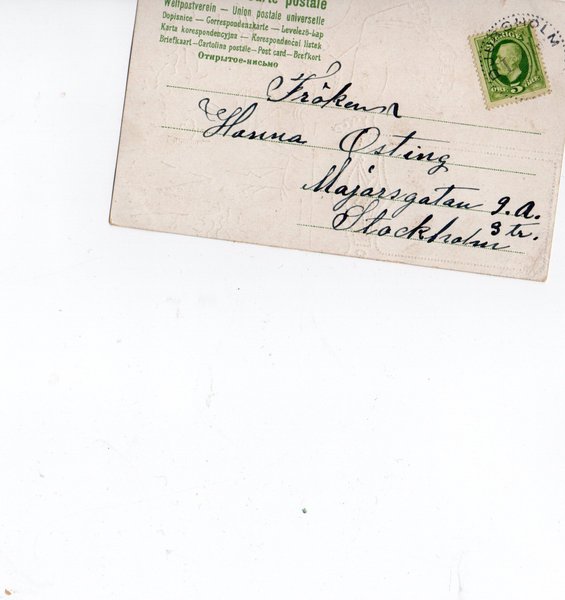 carte postale
Weltpostverein — Union postale universelle
Dopisnice — Correspondenzkarte — Levelező-Lap
Karta korespondencyjna — Korespondenční lístek
Briefkaart — Cartolina postale — Post card — Brefkort
Открытое-письмо
SVERIGE
ÖRE 5 ÖRE
Fröken
Hanna Östing
Majorsgatan 9.A.
3 tr.
Stockholm